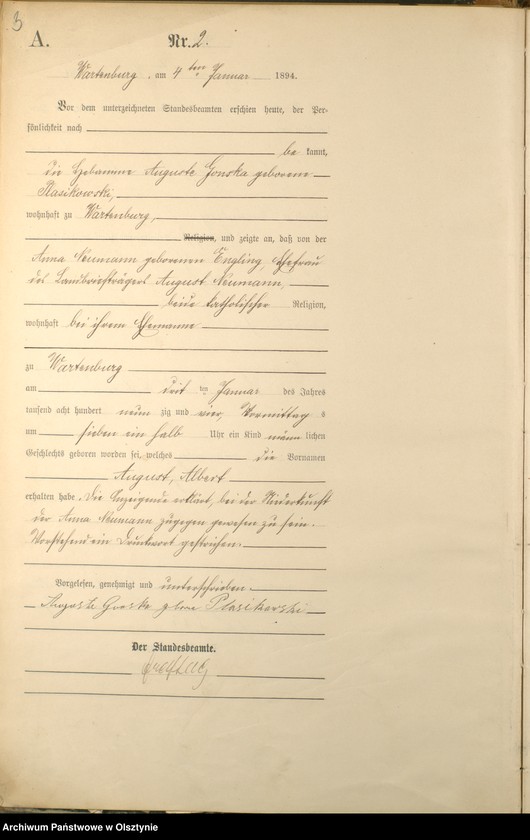 3
A.
Nr. 2.
Wartenburg, am 4ten Januar 1894.
Vor dem unterzeichneten Standesbeamten erschien heute, der Per-
sönlichkeit nach
be kannt,
die Hebamme Auguste Gonska geborene
Plasikowski,
wohnhaft zu Wartenburg,
Religion, und zeigte an, daß von der
Anna Neumann geborenen Engling, Ehefrau
des Landbriefträgers August Neumann,
beide katholischer Religion,
wohnhaft bei ihrem Ehemanne
zu Wartenburg
am drit ten Januar des Jahres
tausend acht hundert neun zig und vier, Vormittag s
um sieben ein halb Uhr ein Kind männ lichen
Geschlechts geboren worden sei, welches die Vornamen
August, Albert
erhalten habe. Die Anzeigende erklärt, bei der Niederkunft
der Anna Neumann zugegen gewesen zu sein.
Vorstehend ein Druckwort gestrichen.
Vorgelesen, genehmigt und unterschrieben.
Plasikowski
Der Standesbeamte.
Archiwum Państwowe w Olsztynie